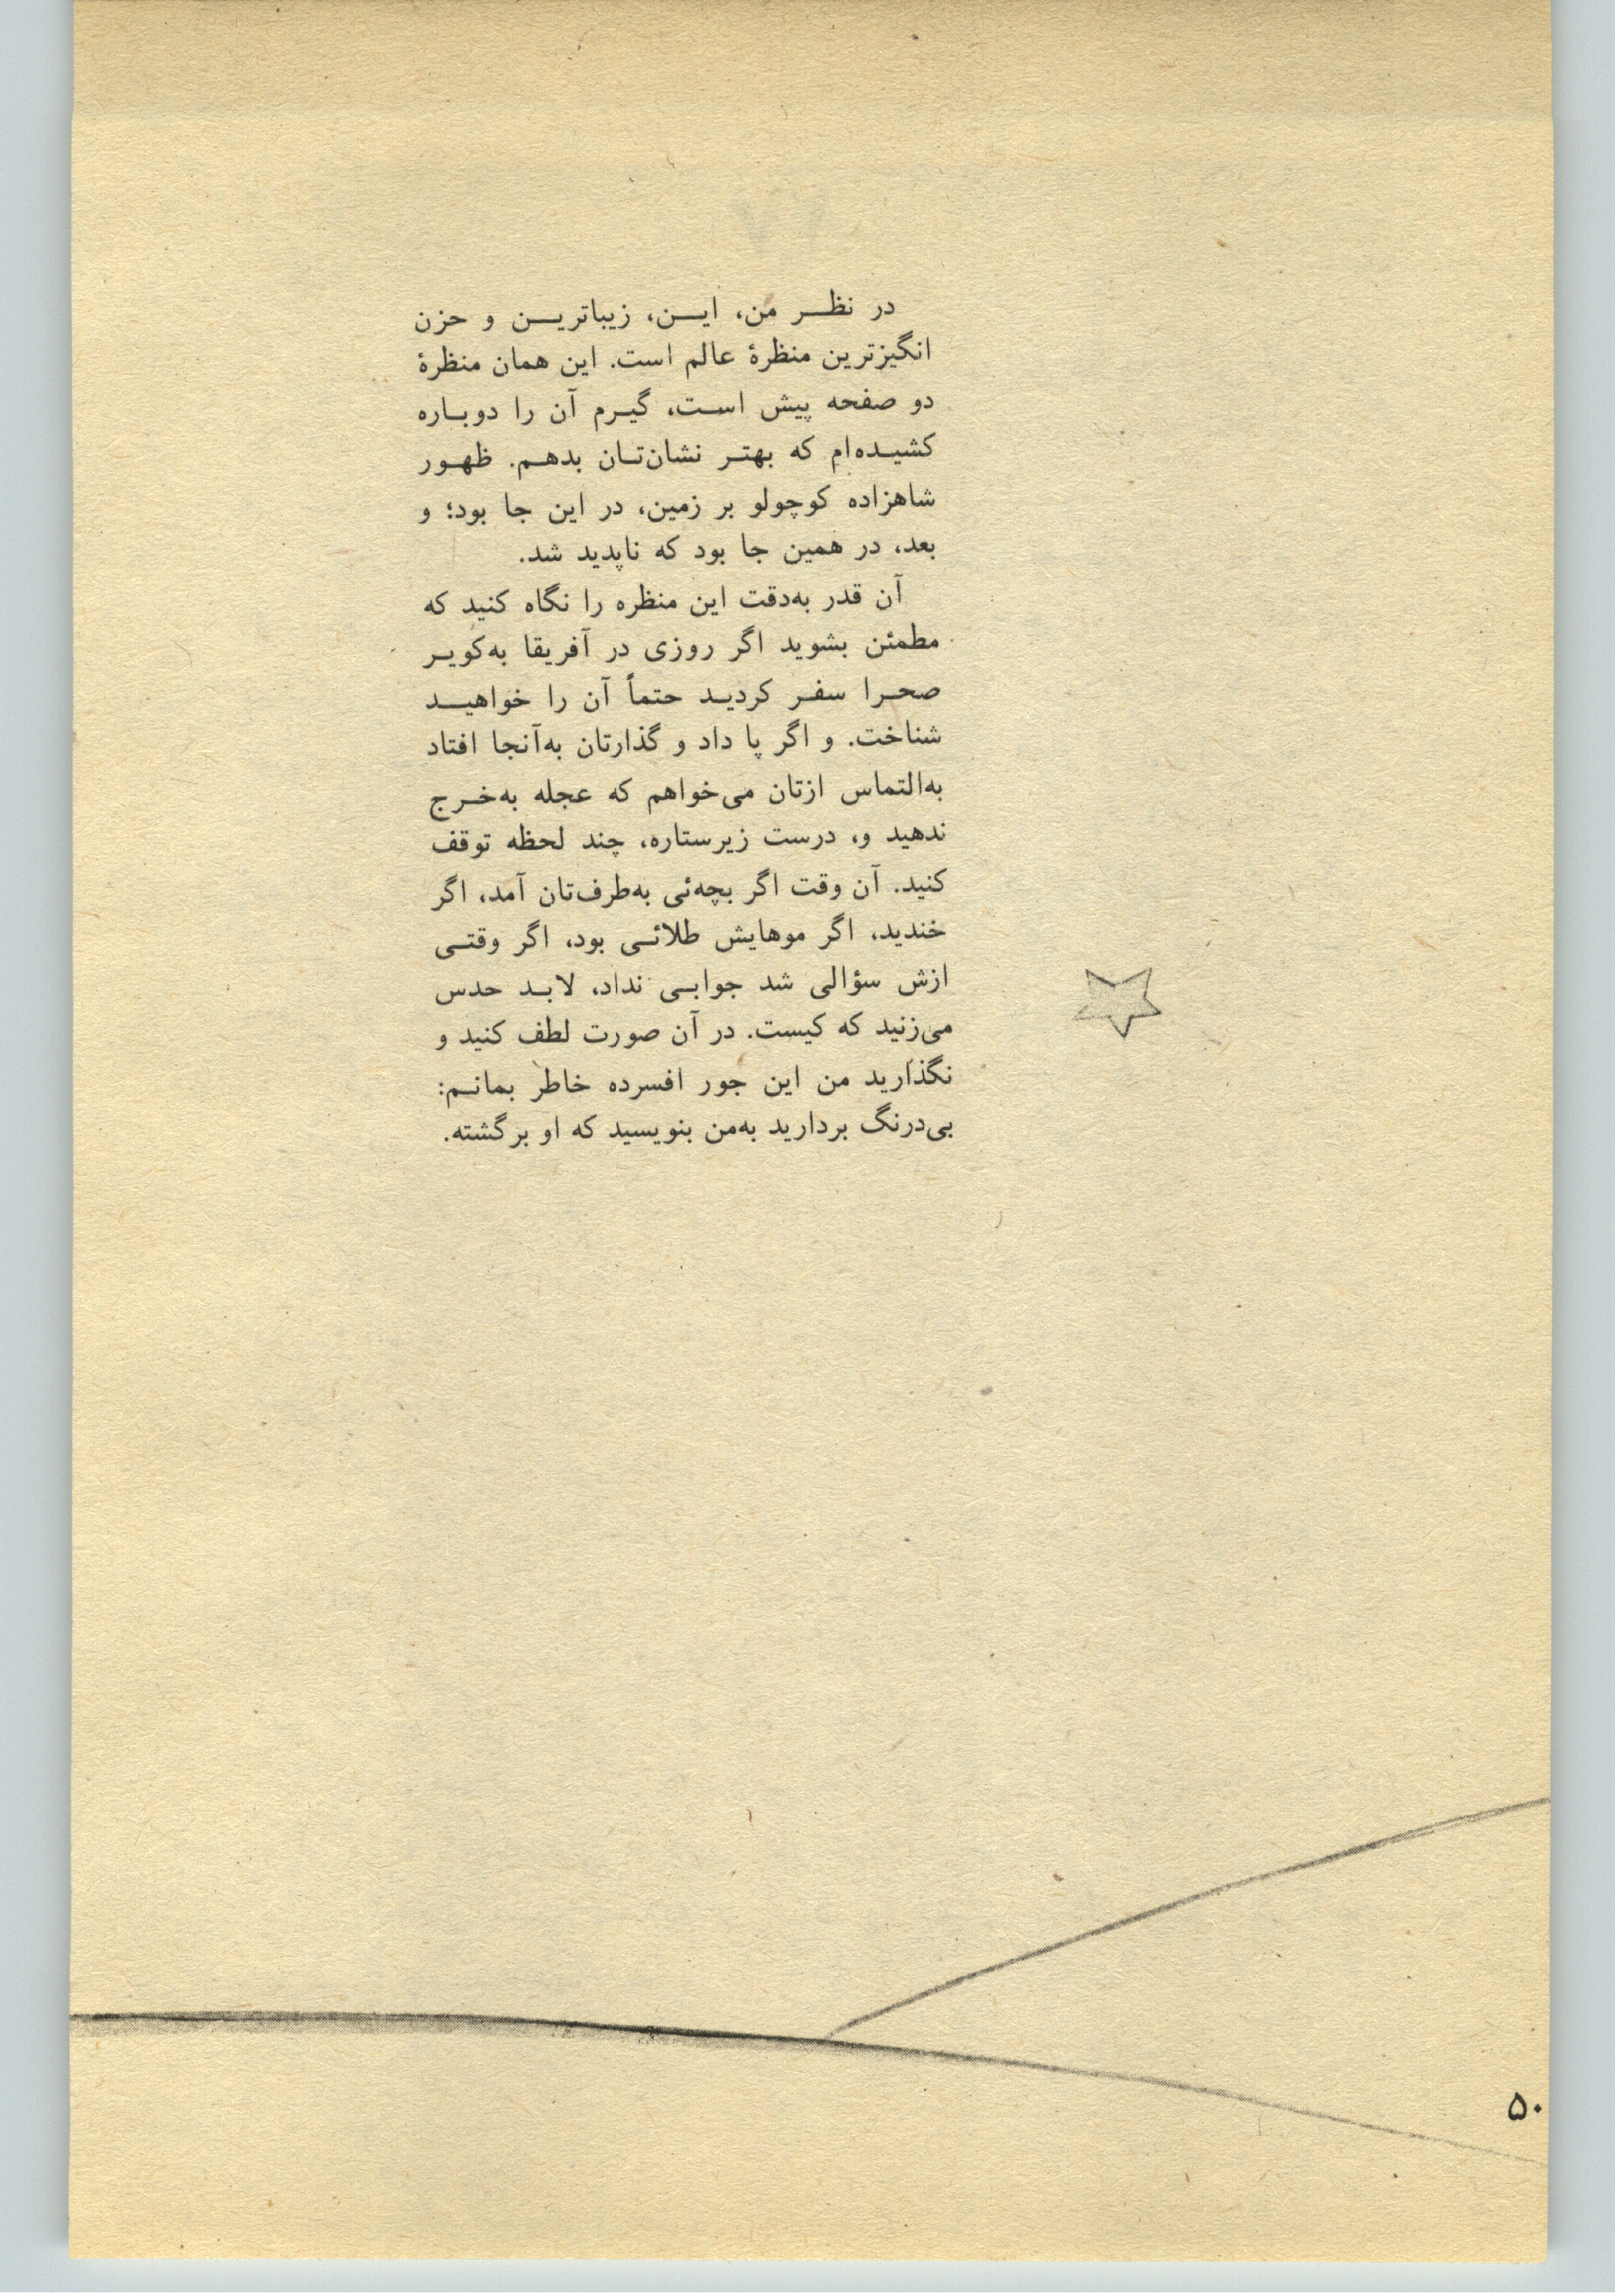 در نظر من، این، زیباترین و حزن
انگیزترین منظرهٔ عالم است. این همان منظرهٔ
دو صفحه پیش است، گیرم آن را دوباره
کشیده‌ام که بهتر نشان‌تان بدهم. ظهور
شاهزاده کوچولو بر زمین، در این جا بود؛ و
بعد، در همین جا بود که ناپدید شد.
آن قدر به‌دقت این منظره را نگاه کنید که
مطمئن بشوید اگر روزی در آفریقا به‌کویر
صحرا سفر کردید حتماً آن را خواهید
شناخت. و اگر پا داد و گذارتان به‌آنجا افتاد
به‌التماس ازتان می‌خواهم که عجله به‌خرج
ندهید و، درست زیرستاره، چند لحظه توقف
کنید. آن وقت اگر بچه‌ئی به‌طرف‌تان آمد، اگر
خندید، اگر موهایش طلائی بود، اگر وقتی
ازش سؤالی شد جوابی نداد، لابد حدس
می‌زنید که کیست. در آن صورت لطف کنید و
نگذارید من این جور افسرده خاطر بمانم:
بی‌درنگ بردارید به‌من بنویسید که او برگشته.
۵۰